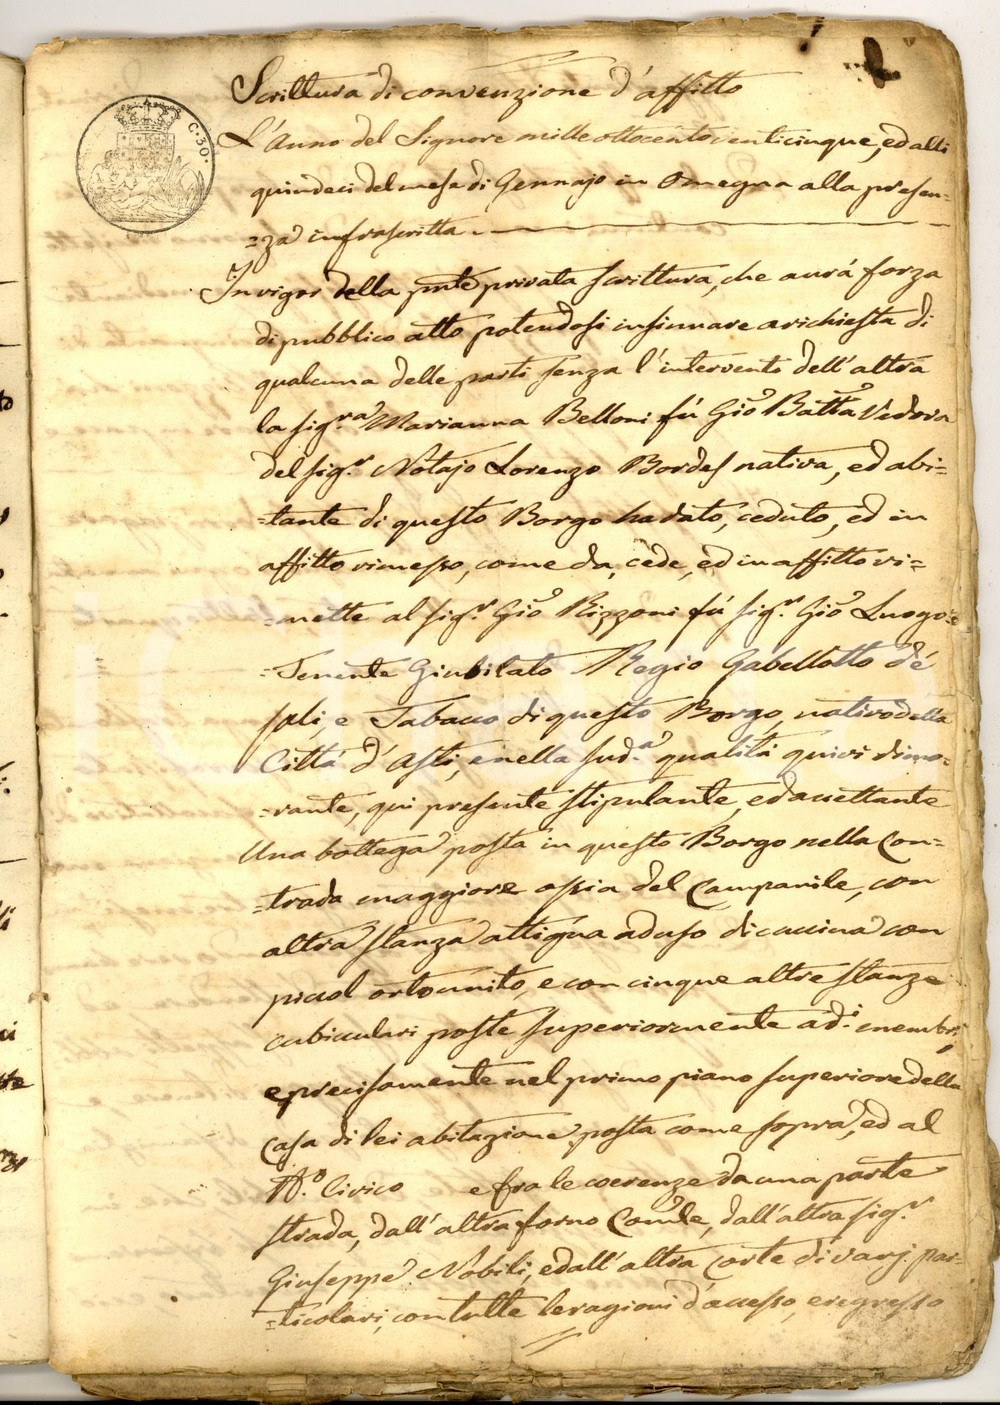 Scrittura di convenzione d'affitto
C: 30.
L'Anno del Signore mille ottocento venticinque, ed alli
quindeci del mese di Gennajo in Omegna alla presen=
=za infrascritta.
In vigor della pnte privata scrittura, che avrá forza
di pubblico atto potendosi insinuare a richiesta di
qualcuna delle parti senza l'intervento dell'altra
la sig.ra Marianna Belloni fú Gio Batta Vedova
del sig.r Notajo Lorenzo Bordes nativa, ed abi=
=tante di questo Borgo ha dato, ceduto, ed in
affitto rimesso, come da, cede, ed in affitto ri=
=mette al sig.r Gio Rizzoni fú sig.r Gio Luogo=
=Tenente Giubilato Regio Gabellotto dé
sali, e Tabacco di questo Borgo, nativo della
Cittá d'Asti, e nella sud.a qualitá quivi dimo=
=rante, qui presente stipulante, ed accettante
Una bottega posta in questo Borgo nella Con=
=trada maggiore ossia del Campanile, con
altra stanza attigua ad uso di cucina con
piccol orto unito, e con cinque altre stanze
cubiculari poste superiormente ad.i membri,
e precisamente nel primo piano superiore della
casa di lei abitazione posta come sopra, ed al
N.o Civico e fra le coerenze da una parte
strada, dall'altra forno Comle, dall'altra sig.r
Giuseppe Nobili, ed all'altra Corte di varj par=
=ticolari, con tutte le ragioni d'accesso, e regresso